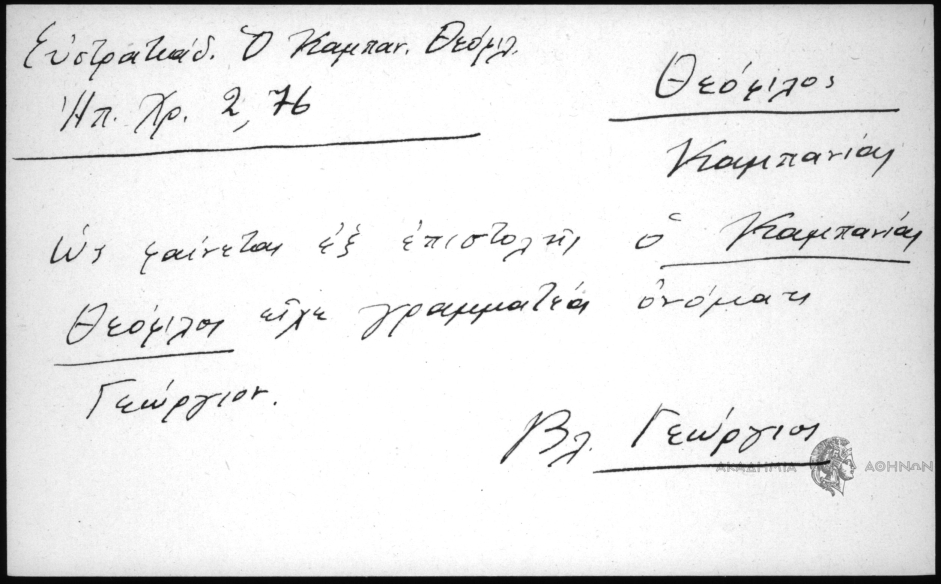 Εὐστρατιάδ. Ὁ Καμπαν. Θεόφιλ.
Ἠπ. Χρ. 2, 76
Θεόφιλος
Καμπανίας
Ὡς φαίνεται ἐξ ἐπιστολῆς ὁ Καμπανίας
Θεόφιλος εἶχε γραμματέα ὀνόματι
Γεώργιον.
Βλ. Γεώργιος
ΑΚΑΔΗΜΙΑ ΑΘΗΝΩΝ